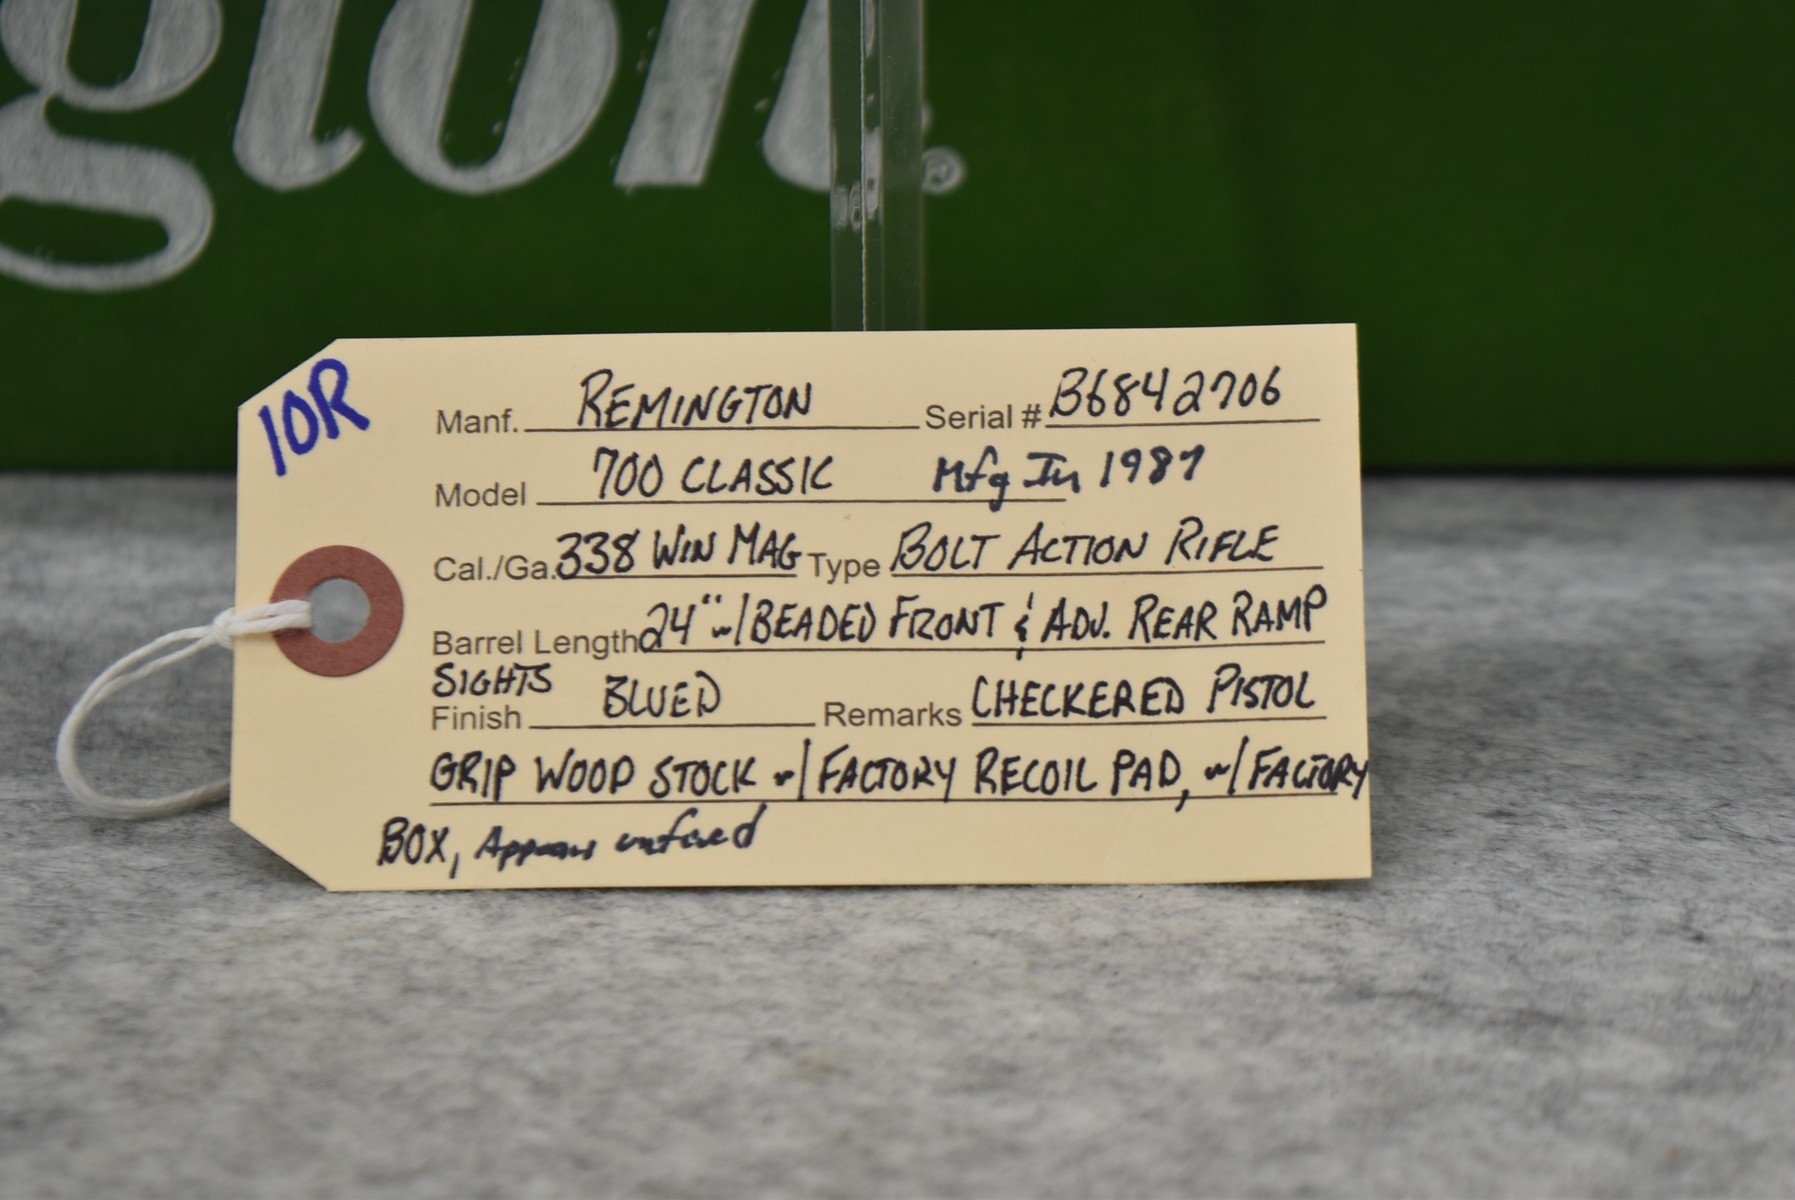 gton®
10R
Manf. REMINGTON Serial # B6842706
Model 700 CLASSIC Mfg In 1987
Cal./Ga. 338 WIN MAG Type BOLT ACTION RIFLE
Barrel Length 24" w/BEADED FRONT & ADJ. REAR RAMP
SIGHTS
Finish BLUED Remarks CHECKERED PISTOL
GRIP WOOD STOCK w/FACTORY RECOIL PAD, w/FACTORY
BOX, Appears unfired